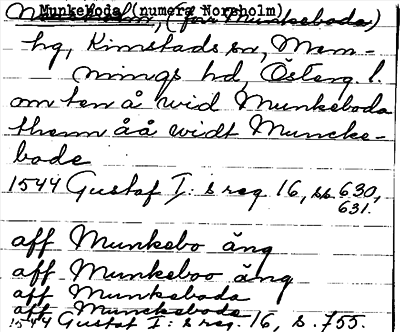 Munkeboda (numera Norsholm)
hg, Kimstads sn, Mem-
mings hd, Österg. l.
om ten å wid Munkeboda
them åå widt Muncke-
bode
1544 Gustaf I: s reg 16, ss. 630,
631.
aff Munkebo äng
aff Munkeboo äng
aff Munkeboda
aff Munckeboda
1544 Gustaf I: s reg. 16, s. 755.